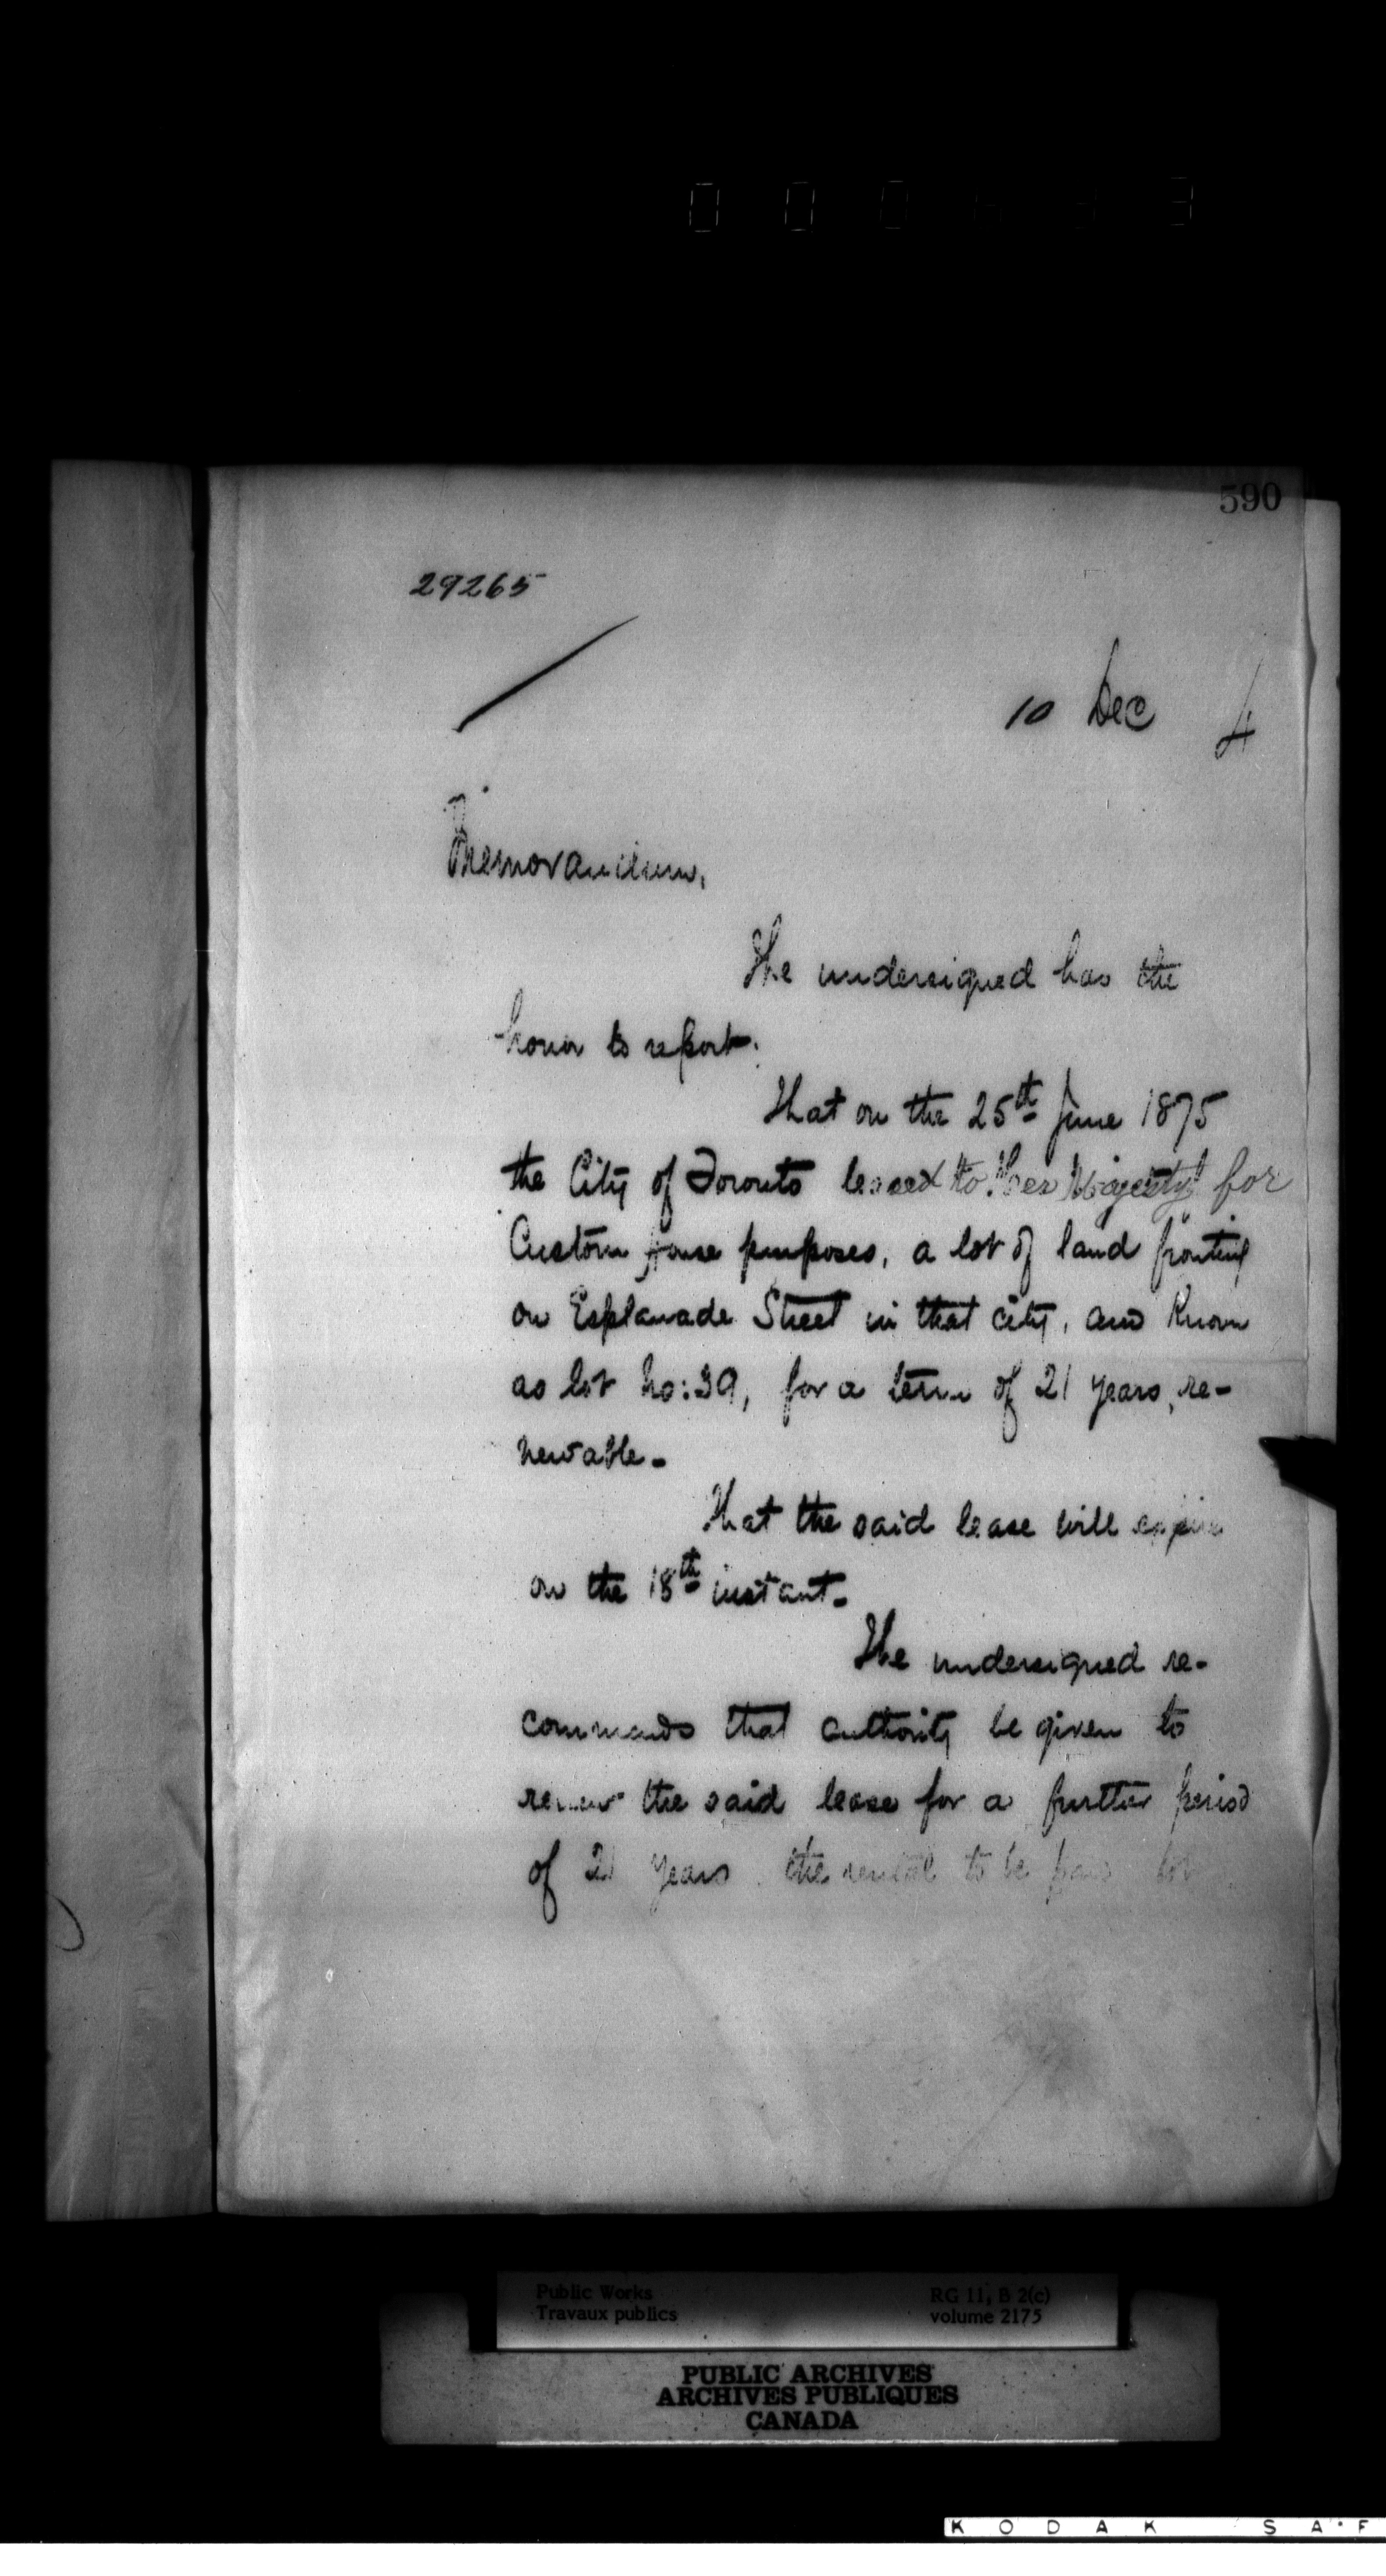 590
29265
10 Dec 4
Memorandum.
The undersigned has the
honor to report:
That on the 25th June 1875
the City of Toronto leased to Her Majesty for
Custom House purposes, a lot of land fronting
on Esplanade Street in that city, and known
as lot No: 39, for a term of 21 years, re-
newable-
That the said lease will expire
on the 18th instant-
The undersigned re-
commends that authority be given to
renew the said lease for a further period
of 21 years the rental to be
Public Works
Travaux publics
RG 11, B 2(c)
volume 2175
PUBLIC ARCHIVES
ARCHIVES PUBLIQUES
CANADA
KODAK SAF